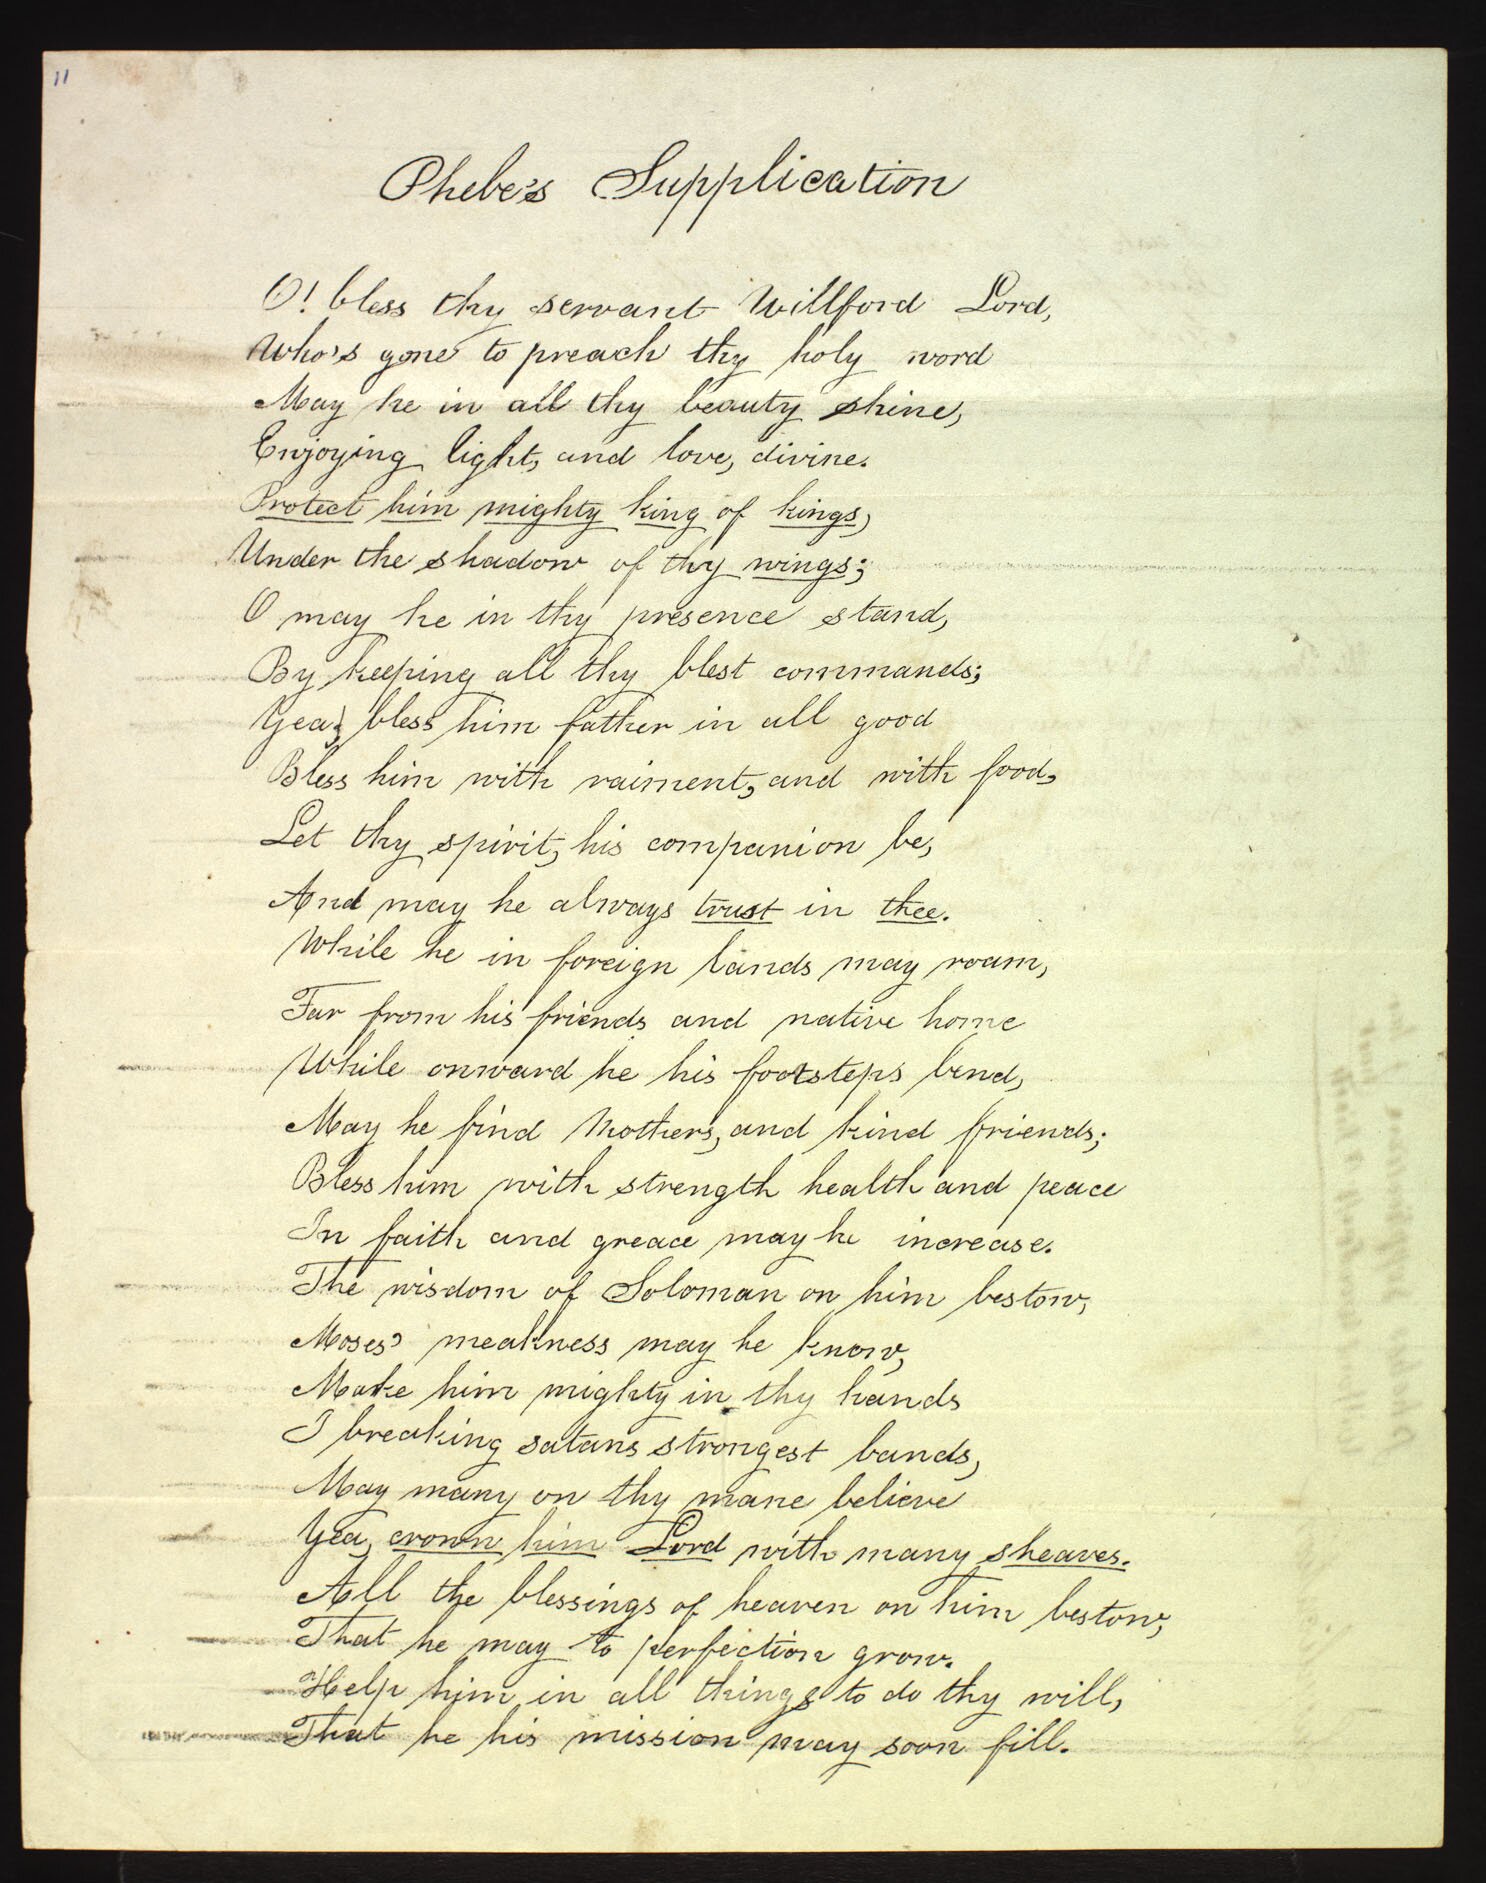 11
Phebe's Supplication
O! bless thy servant Willford Lord,
Who's gone to preach thy holy word
May he in all thy beauty shine,
Enjoying light, and love, divine.
Protect him mighty king of kings,
Under the shadow of thy wings;
O may he in thy presence stand,
By keeping all thy blest commands;
Yea; bless him father in all good
Bless him with raiment, and with food,
Let thy spirit, his companion be,
And may he always trust in thee.
While he in foreign lands may roam,
Far from his friends and native home
While onward he his footsteps bend,
May he find Mothers, and kind friends;
Bless him with strength health and peace
In faith and greace may he increase.
The wisdom of Soloman on him bestow,
Moses' meakness may he know,
Make him mighty in thy hands
I breaking satans strongest bands,
May many on thy mane believe
Yea, crown him Lord with many sheaves.
All the blessings of heaven on him bestow,
That he may to perfection grow.
Help him in all things to do thy will,
That he his mission may soon fill.